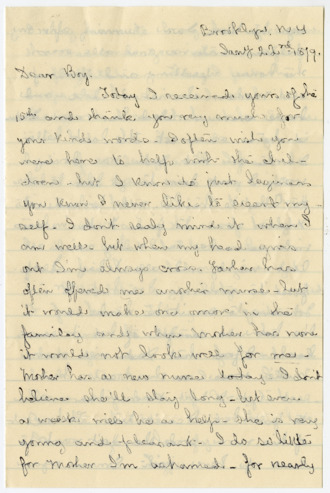 Brooklyn N.Y.
Jany 22nd 1879.
Dear Boy.
Today I received yours of the
15th and thank you very much for
your kind words. I often wish you
were here to help with the chil-
dren - but I know its just laziness
you know I never like to exert my-
self. I don't really mind it when I
am well. but when my head gives
out I'm always cross. Father has
often offered me another nurse - but
it would make one more in the
family and when Mother has none
it would not look well for me -
Mother has a new nurse today I don't
believe she'll stay long - but even
a week will be a help - she is very
young and pleasant - I do so little
for Mother I'm ashamed - for nearly